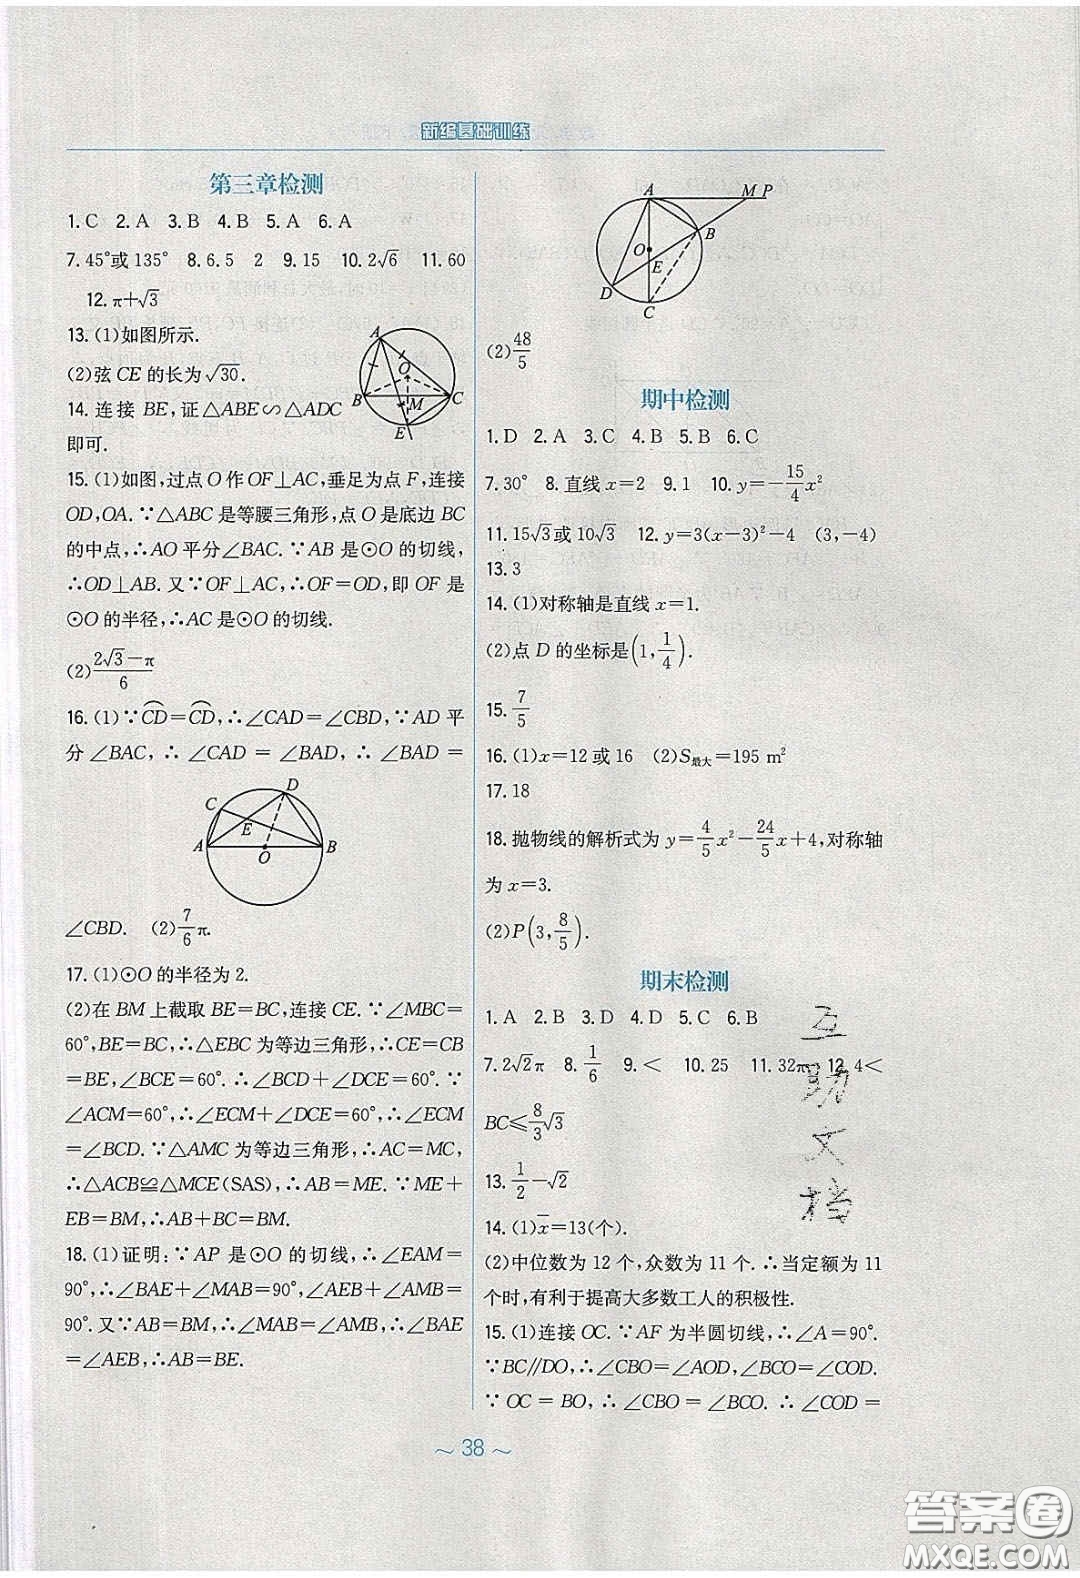 新编基础训练
第三章检测
1.C 2.A 3.B 4.B 5.A 6.A
7.45°或135° 8.6.5 2 9.15 10.2√6 11.60
12.π+√3
13.(1)如图所示.
(2)弦CE的长为√30.
14.连接BE,证△ABE∽△ADC
即可.
A
O
B
M
C
E
15.(1)如图,过点O作OF⊥AC,垂足为点F,连接
OD,OA.∵△ABC是等腰三角形,点O是底边BC
的中点,∴AO平分∠BAC.∵AB是⊙O的切线,
∴OD⊥AB.又∵OF⊥AC,∴OF=OD,即OF是
⊙O的半径,∴AC是⊙O的切线.
(2)(2√3-π)/6
16.(1)∵⌒CD=⌒CD,∴∠CAD=∠CBD,∵AD平
分∠BAC,∴∠CAD=∠BAD,∴∠BAD=
C
D
E
A
O
B
∠CBD. (2)7/6π.
17.(1)⊙O的半径为2.
(2)在BM上截取BE=BC,连接CE.∵∠MBC=
60°,BE=BC,∴△EBC为等边三角形,∴CE=CB
=BE,∠BCE=60°.∴∠BCD+∠DCE=60°.∵
∠ACM=60°,∴∠ECM+∠DCE=60°,∴∠ECM
=∠BCD.∵△AMC为等边三角形,∴AC=MC,
∴△ACB≌△MCE(SAS),∴AB=ME.∵ME+
EB=BM,∴AB+BC=BM.
18.(1)证明:∵AP是⊙O的切线,∴∠EAM=
90°,∴∠BAE+∠MAB=90°,∠AEB+∠AMB=
90°.又∵AB=BM,∴∠MAB=∠AMB,∴∠BAE
=∠AEB,∴AB=BE.
A
M P
B
O
E
D
C
(2)48/5
期中检测
1.D 2.A 3.C 4.B 5.B 6.C
7.30° 8.直线x=2 9.1 10.y=-15/4x²
11.15√3或10√3 12.y=3(x-3)²-4 (3,-4)
13.3
14.(1)对称轴是直线x=1.
(2)点D的坐标是(1,1/4).
15.7/5
16.(1)x=12或16 (2)S最大=195 m²
17.18
18.抛物线的解析式为y=4/5x²-24/5x+4,对称轴
为x=3.
(2)P(3,8/5).
期末检测
1.A 2.B 3.D 4.D 5.C 6.B
7.2√2π 8.1/6 9.< 10.25 11.32π 12.4<
BC≤8/3√3
13.1/2-√2
14.(1)x̄=13(个).
(2)中位数为12个,众数为11个.∴当定额为11
个时,有利于提高大多数工人的积极性.
15.(1)连接OC.∵AF为半圆切线,∴∠A=90°.
∵BC∥DO,∴∠CBO=∠AOD,∠BCO=∠COD.
∵OC=BO,∴∠CBO=∠BCO.∴∠COD=
互助文档
~38~
答案圈
MXQE.COM